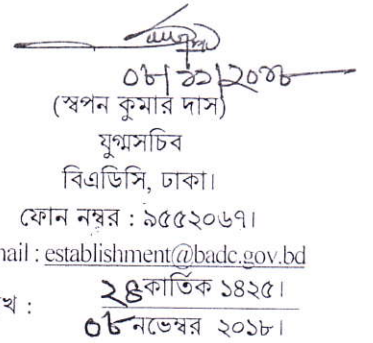 ০৮/১১/২০১৮
(স্বপন কুমার দাস)
যুগ্মসচিব
বিএডিসি, ঢাকা।
ফোন নম্বর : ৯৫৫২০৬৭।
nail : establishment@badc.gov.bd
২৪ কার্তিক ১৪২৫।
খ :
০৮ নভেম্বর ২০১৮।